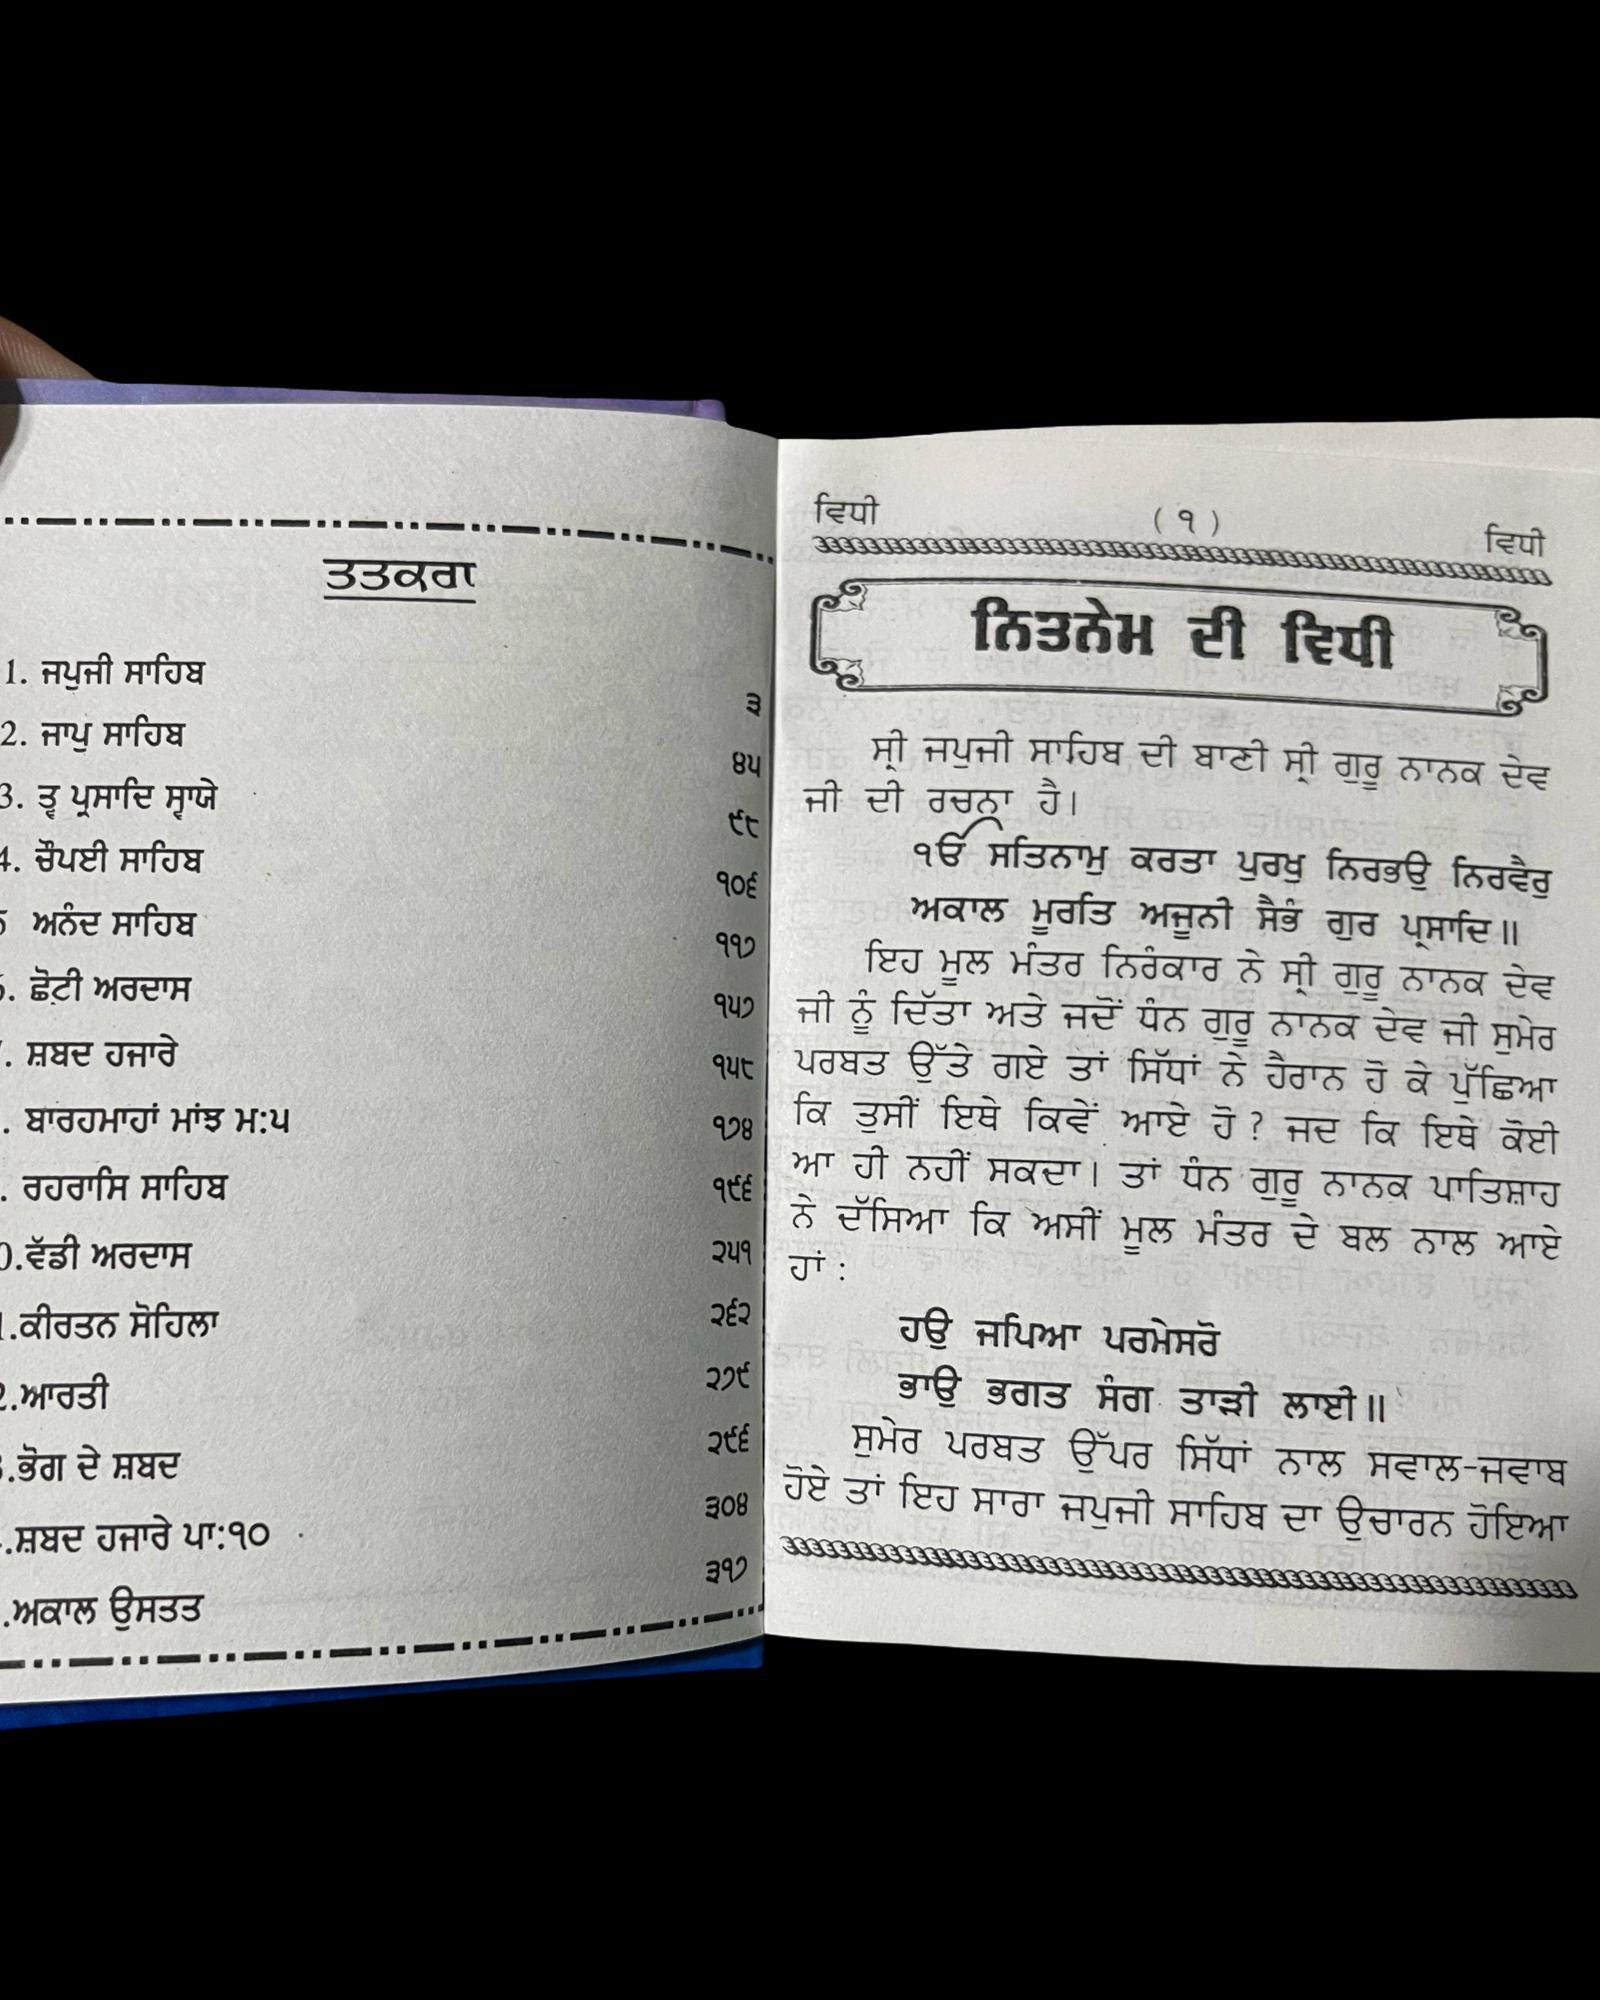 ਤਤਕਰਾ
1. ਜਪੁਜੀ ਸਾਹਿਬ ੩
2. ਜਾਪੁ ਸਾਹਿਬ ੪੫
3. ਤ੍ਵ ਪ੍ਰਸਾਦਿ ਸ੍ਵਾਯੇ ੯੮
4. ਚੌਪਈ ਸਾਹਿਬ ੧੦੬
5 ਅਨੰਦ ਸਾਹਿਬ ੧੧੭
6. ਛੋਟੀ ਅਰਦਾਸ ੧੫੭
. ਸ਼ਬਦ ਹਜਾਰੇ ੧੫੮
. ਬਾਰਹਮਾਹਾਂ ਮਾਂਝ ਮ:੫ ੧੭੪
. ਰਹਰਾਸਿ ਸਾਹਿਬ ੧੯੬
0.ਵੱਡੀ ਅਰਦਾਸ ੨੫੧
1.ਕੀਰਤਨ ਸੋਹਿਲਾ ੨੬੨
2.ਆਰਤੀ ੨੭੯
3.ਭੋਗ ਦੇ ਸ਼ਬਦ ੨੯੬
.ਸ਼ਬਦ ਹਜਾਰੇ ਪਾ:੧੦ ੩੦੪
.ਅਕਾਲ ਉਸਤਤ ੩੧੭
ਵਿਧੀ (੧) ਵਿਧੀ
ਨਿਤਨੇਮ ਦੀ ਵਿਧੀ
ਸ੍ਰੀ ਜਪੁਜੀ ਸਾਹਿਬ ਦੀ ਬਾਣੀ ਸ੍ਰੀ ਗੁਰੂ ਨਾਨਕ ਦੇਵ
ਜੀ ਦੀ ਰਚਨਾ ਹੈ।
ੴ ਸਤਿਨਾਮੁ ਕਰਤਾ ਪੁਰਖੁ ਨਿਰਭਉ ਨਿਰਵੈਰੁ
ਅਕਾਲ ਮੂਰਤਿ ਅਜੂਨੀ ਸੈਭੰ ਗੁਰ ਪ੍ਰਸਾਦਿ॥
ਇਹ ਮੂਲ ਮੰਤਰ ਨਿਰੰਕਾਰ ਨੇ ਸ੍ਰੀ ਗੁਰੂ ਨਾਨਕ ਦੇਵ
ਜੀ ਨੂੰ ਦਿੱਤਾ ਅਤੇ ਜਦੋਂ ਧੰਨ ਗੁਰੂ ਨਾਨਕ ਦੇਵ ਜੀ ਸੁਮੇਰ
ਪਰਬਤ ਉੱਤੇ ਗਏ ਤਾਂ ਸਿੱਧਾਂ ਨੇ ਹੈਰਾਨ ਹੋ ਕੇ ਪੁੱਛਿਆ
ਕਿ ਤੁਸੀਂ ਇਥੇ ਕਿਵੇਂ ਆਏ ਹੋ? ਜਦ ਕਿ ਇਥੇ ਕੋਈ
ਆ ਹੀ ਨਹੀਂ ਸਕਦਾ। ਤਾਂ ਧੰਨ ਗੁਰੂ ਨਾਨਕ ਪਾਤਿਸ਼ਾਹ
ਨੇ ਦੱਸਿਆ ਕਿ ਅਸੀਂ ਮੂਲ ਮੰਤਰ ਦੇ ਬਲ ਨਾਲ ਆਏ
ਹਾਂ :
ਹਉ ਜਪਿਆ ਪਰਮੇਸਰੋ
ਭਾਉ ਭਗਤ ਸੰਗ ਤਾੜੀ ਲਾਈ॥
ਸੁਮੇਰ ਪਰਬਤ ਉੱਪਰ ਸਿੱਧਾਂ ਨਾਲ ਸਵਾਲ-ਜਵਾਬ
ਹੋਏ ਤਾਂ ਇਹ ਸਾਰਾ ਜਪੁਜੀ ਸਾਹਿਬ ਦਾ ਉਚਾਰਨ ਹੋਇਆ